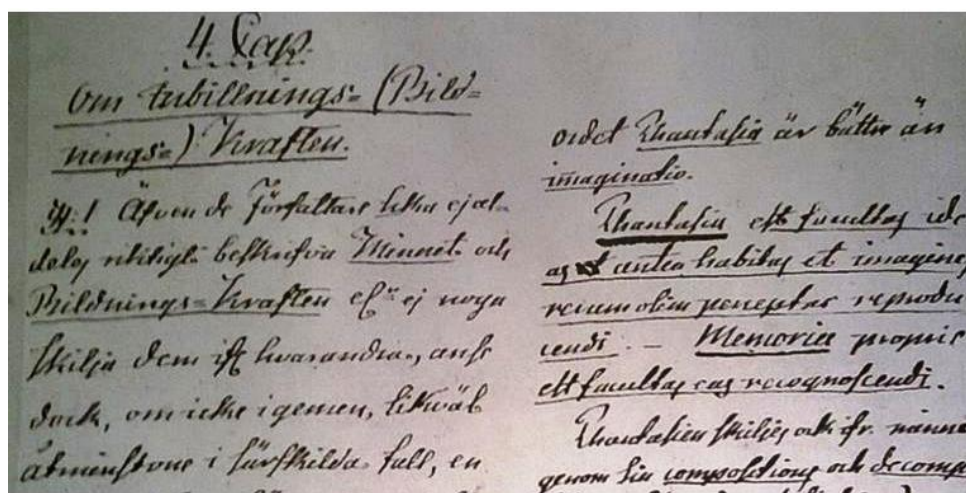 4. Cap.
Om Inbillnings- (Bild-
nings-) Kraften.
§. 1 Äfven de Författare hka ej al-
deles riktigt beskrifva Minnet och
Bildnings-Kraften el. ej noga
skilja dem ifr hvarandra, anse
dock, om icke i gemen, likväl
åtminstone i särskilda fall, en
ordet Phantasia är bättre än
imaginatio.
Phantasia est facultas ide
as antea habitas et imagines
rerum olim perceptas reprodu
cendi. – Memoria proprie
est facultas eas recognoscendi.
Phantasien skiljes ock ifr. minne
genom sin compositions och decomp